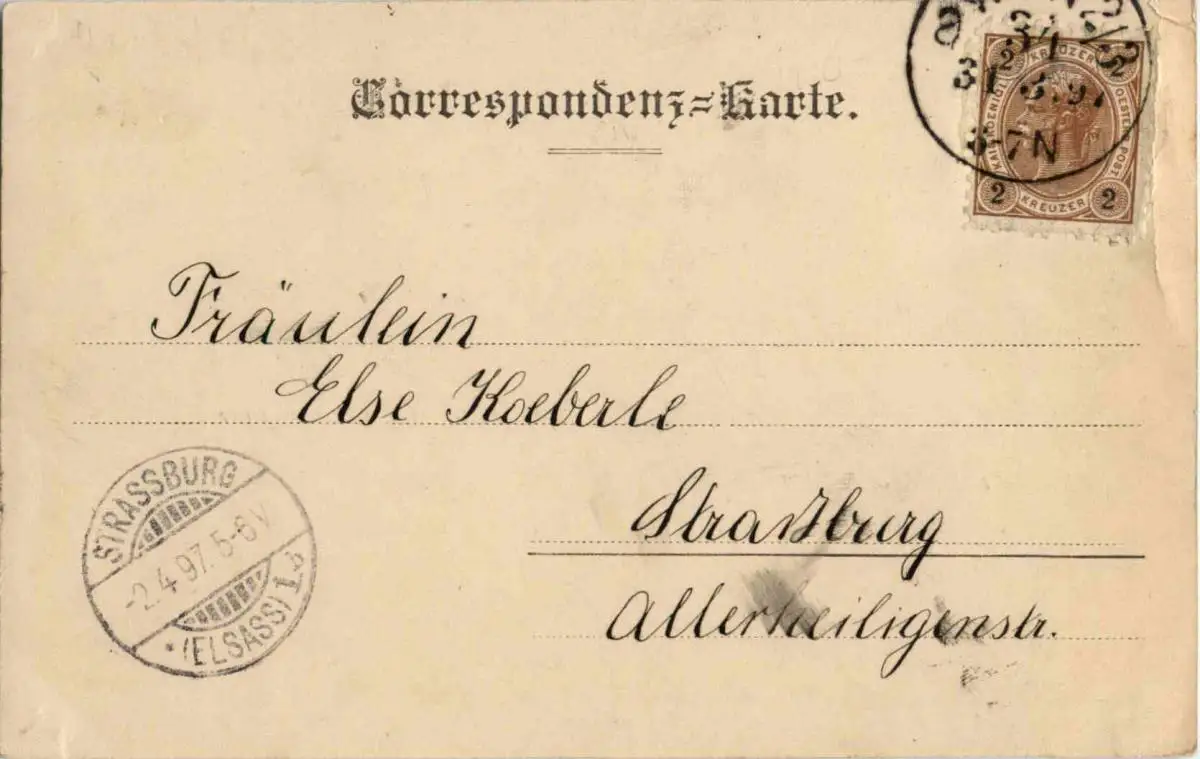 Correspondenz=Karte.
31 3.97
-7N
2 KREUZER 2
OESTER. POST
2 KREUZER 2
Fräulein
Else Koeberle
Straßburg
Allerheiligenstr.
STRASSBURG
-2.4.97. 5-6V
* (ELSASS) 1.b